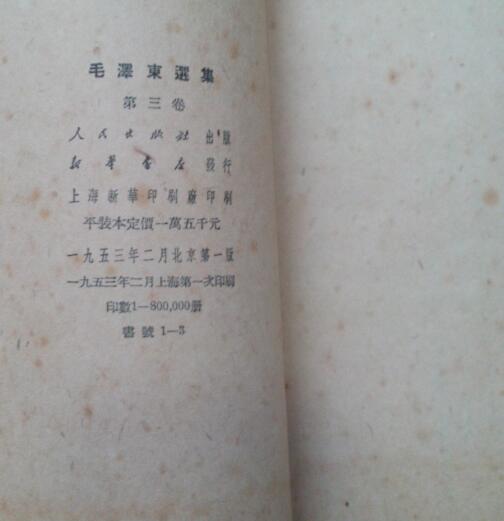 毛澤東選集
第三卷
人民出版社 出版
新華書店 發行
上海新華印刷廠印刷
平裝本定價一萬五千元
一九五三年二月北京第一版
一九五三年二月上海第一次印刷
印數1—800,000册
書號1—3